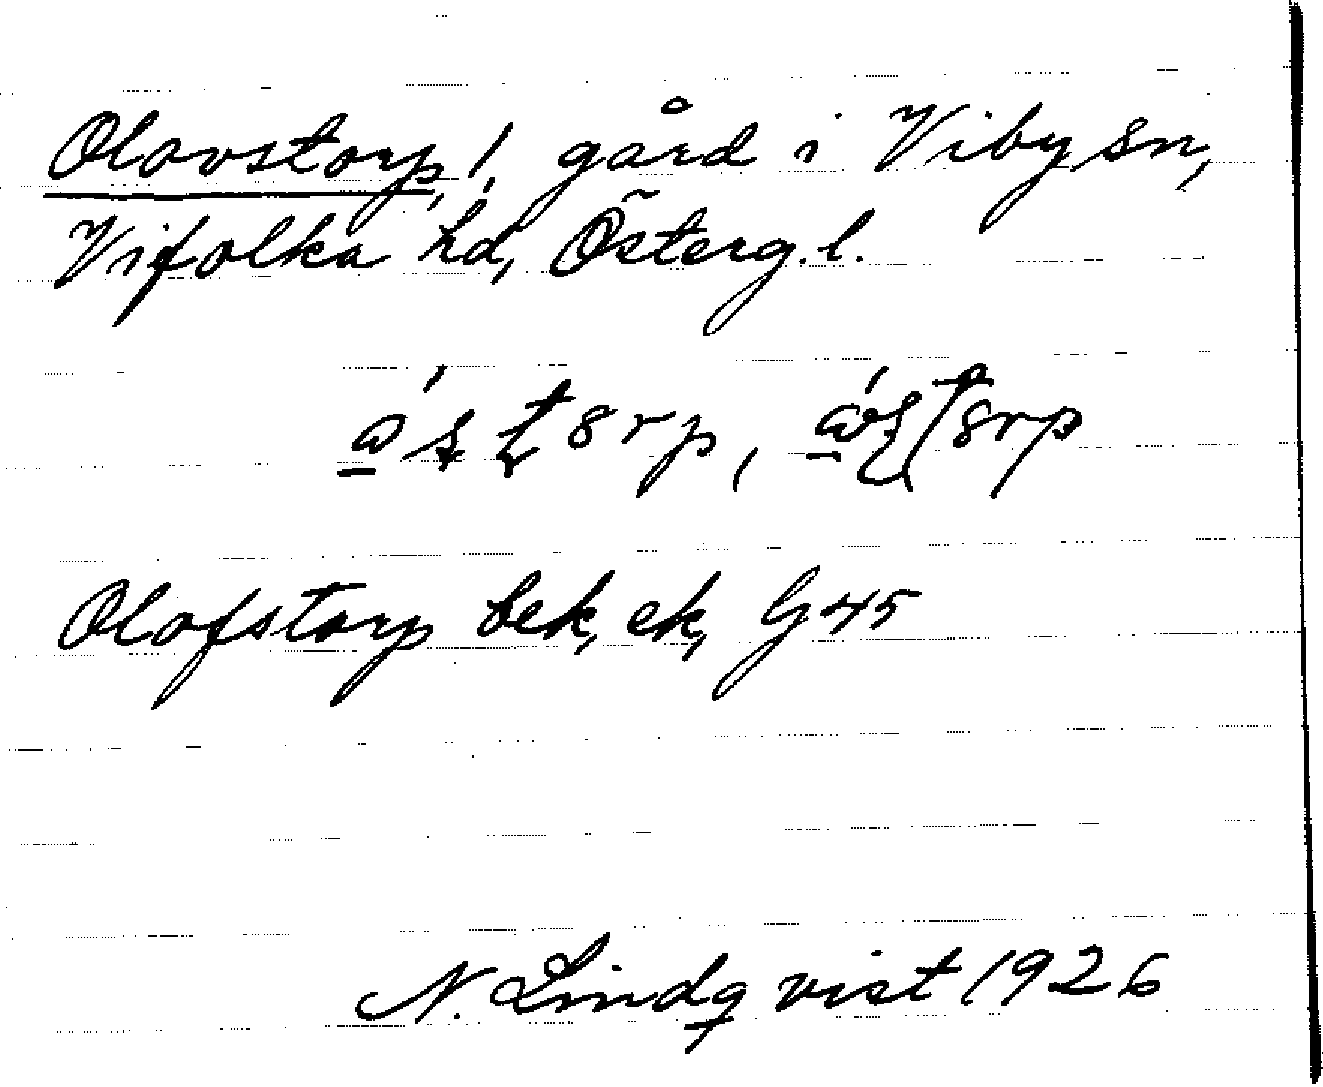 Olovstorp, 1, gård i Viby sn,
Vifolka hd, Österg. l.
Olofstorp bek, ek, G 45
N. Lindqvist 1926